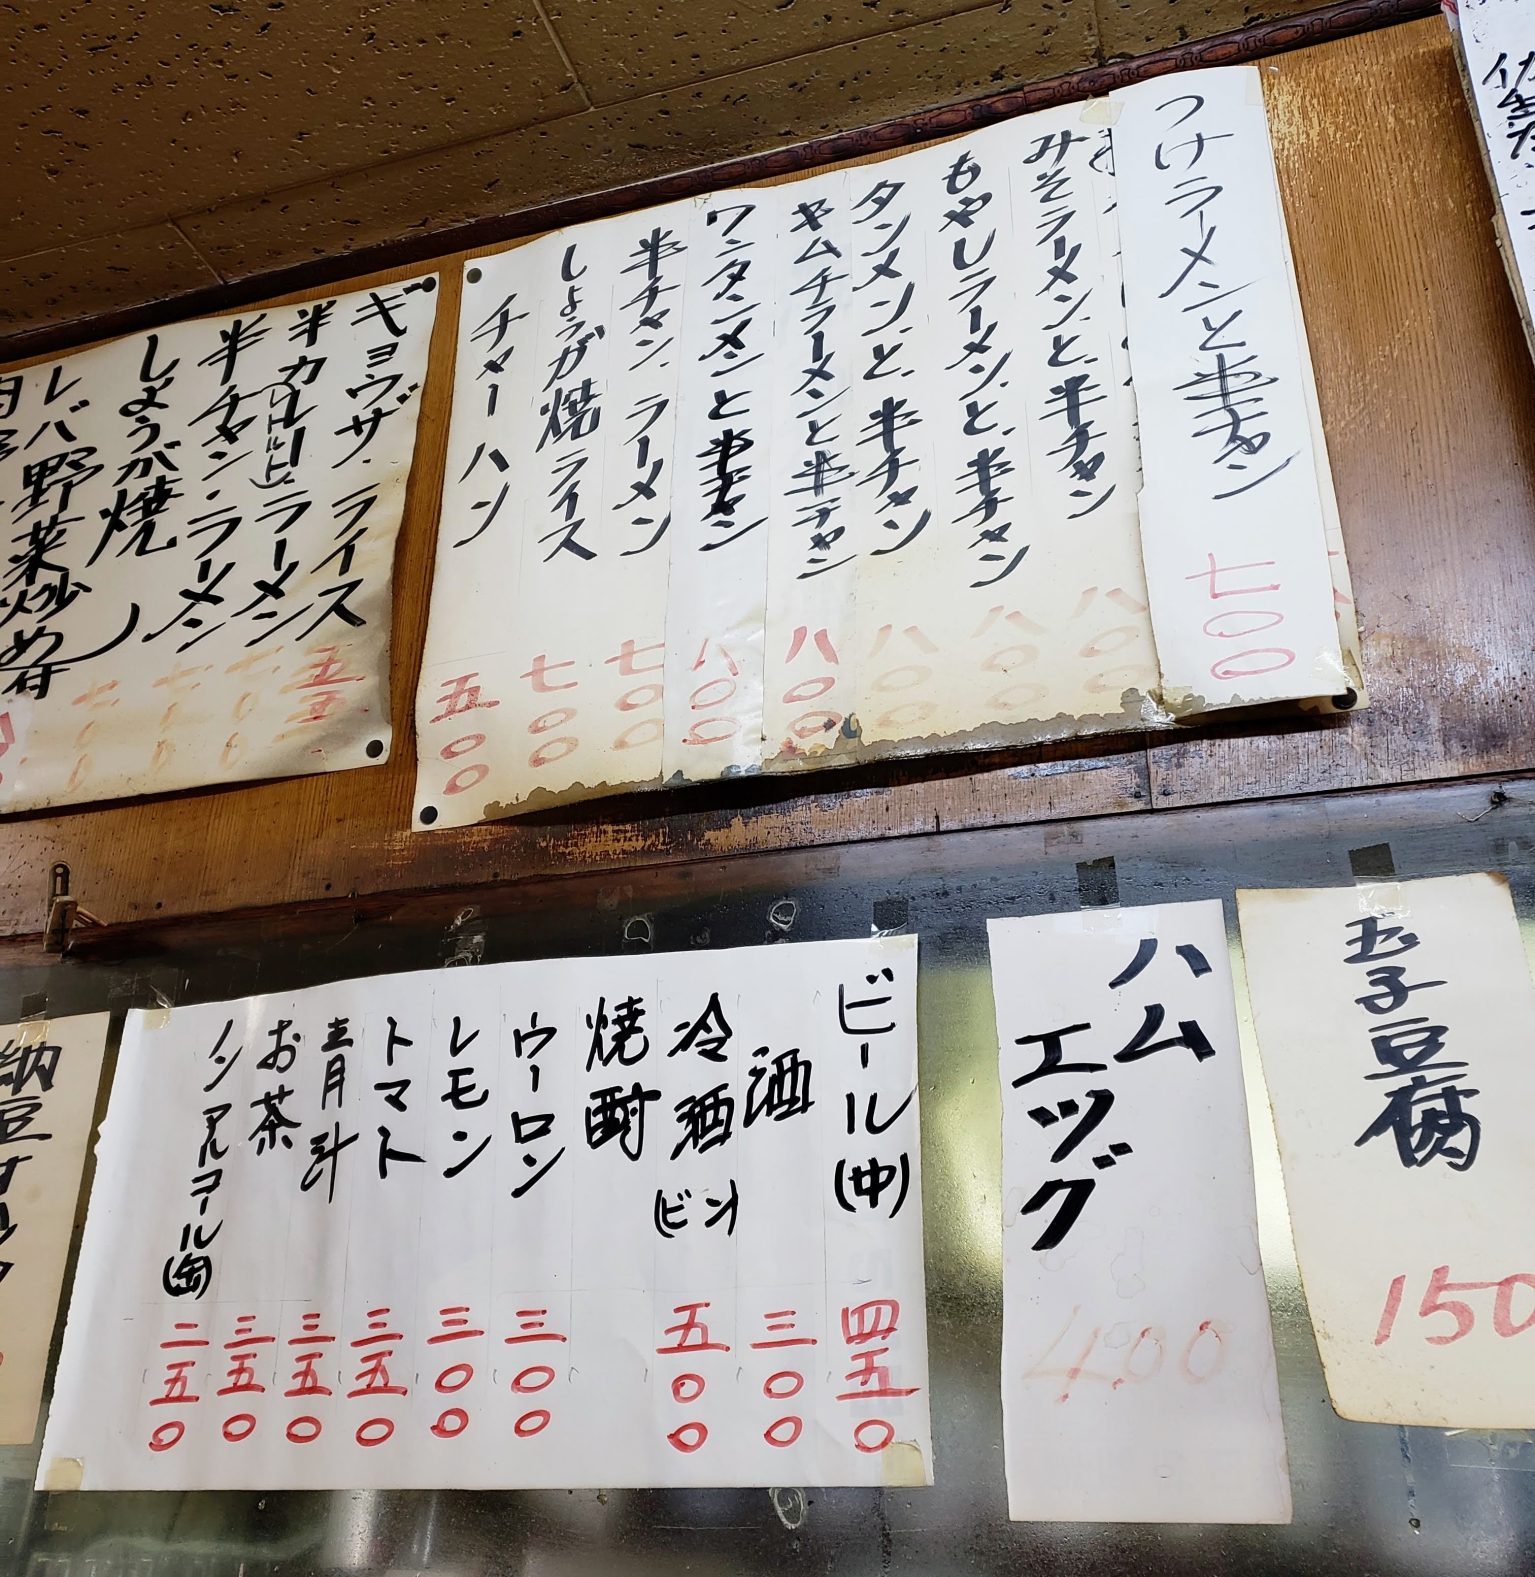 つけラーメンと半チャン 七〇〇
みそラーメンと半チャン 八〇〇
もやしラーメンと、半チャン 八〇〇
タンメンと、半チャン 八〇〇
キムチラーメンと半チャン 八〇〇
ワンタンメンと半チャン 八〇〇
半チャン、ラーメン 七〇〇
しょうが焼ライス 七〇〇
チャーハン 五〇〇
ギョウザ、ライス 五五〇
半カレー(レトルト)、ラーメン 七〇〇
半チャン・ラーメン 七〇〇
しょうが焼 七〇〇
レバ野菜炒め付
玉子豆腐 150
ハムエッグ 400
ビール(中) 四五〇
酒 三〇〇
冷酒(ビン) 五〇〇
焼酎
ウーロン 三〇〇
レモン 三〇〇
トマト 三五〇
青汁 三五〇
お茶 三五〇
ノンアルコール(缶) 二五〇
納豆